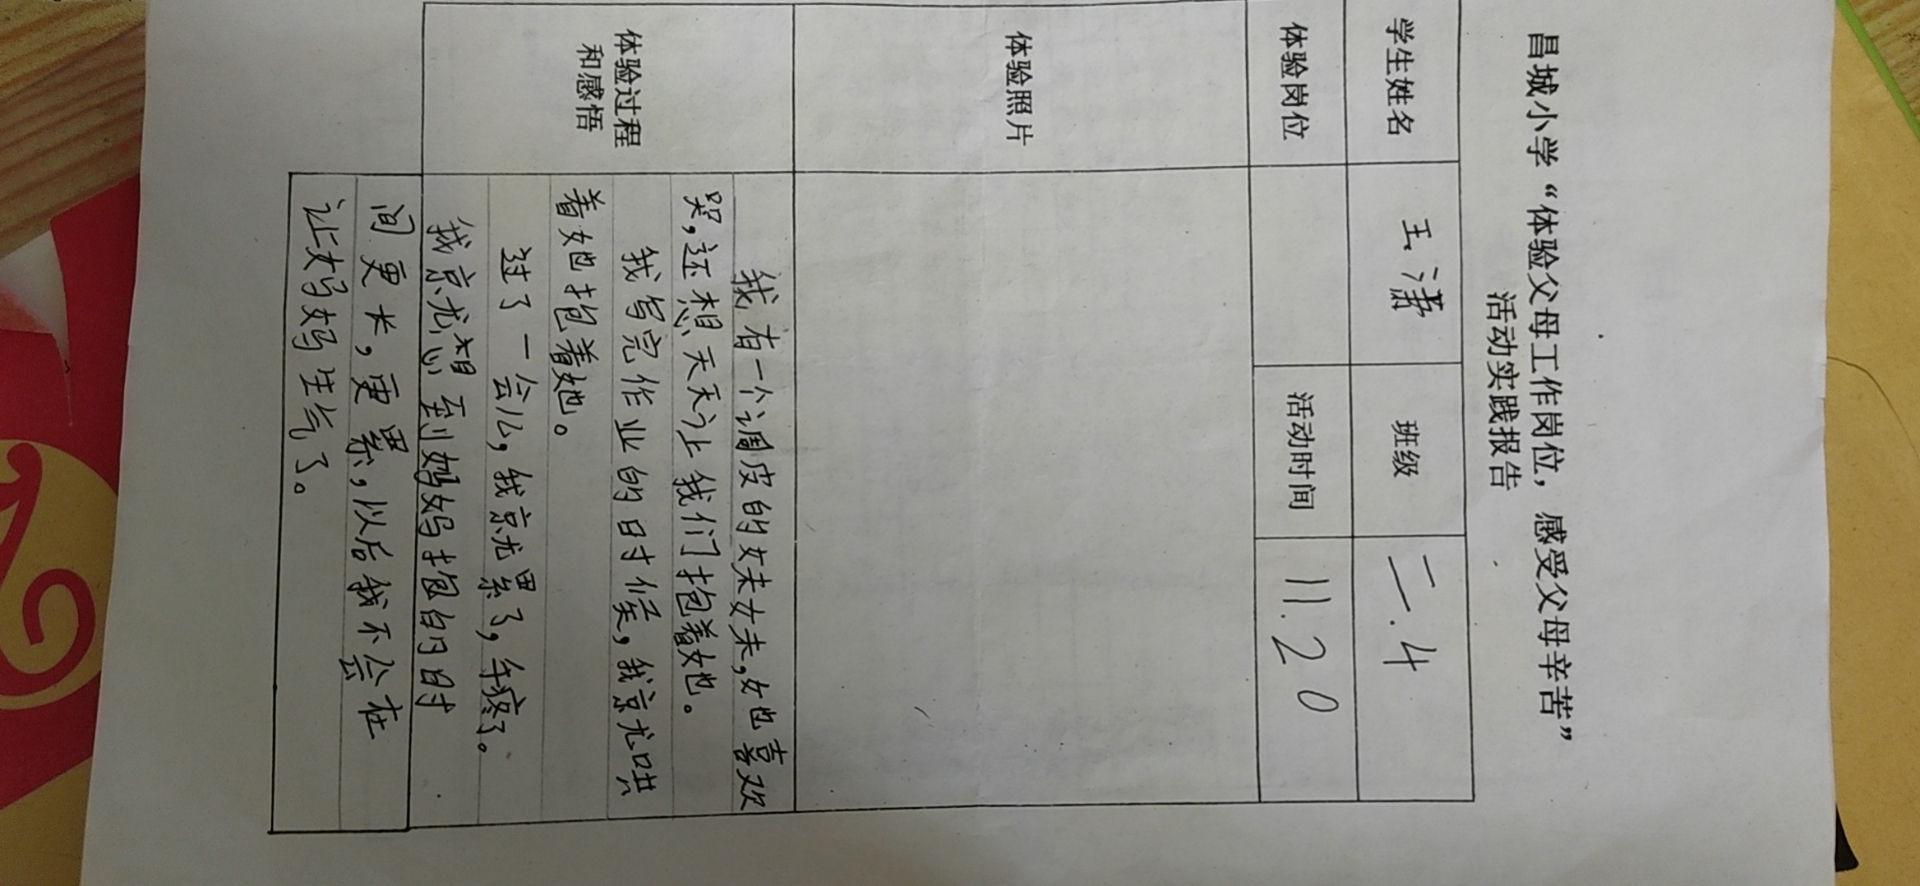 昌城小学“体验父母工作岗位，感受父母辛苦”
活动实践报告
学生姓名 王潇 班级 二.4
体验岗位 活动时间 11.20
体验照片
体验过程
和感悟
我有一个调皮的妹妹,她喜欢
哭,还想天天让我们抱着她。
我写完作业的时候,我就哄
着她抱着她。
过了一会儿,我就累了,手疼了。
我就想到妈妈抱的时
间更长,更累,以后我不会在
让妈妈生气了。